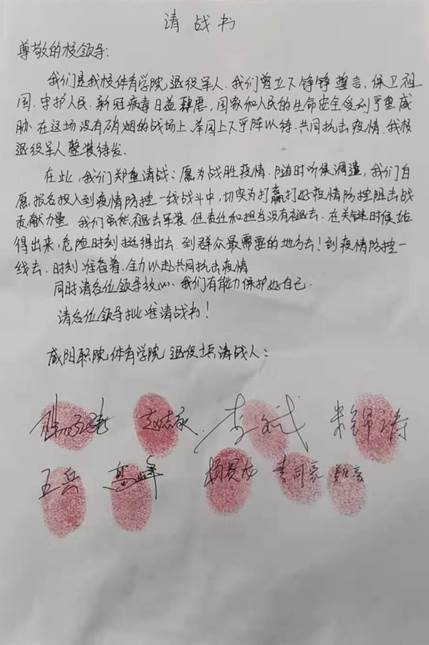 请战书
尊敬的校领导:
我们是我校体育学院退役军人,我们曾立下铮铮誓言,保卫祖
国,守护人民,新冠病毒日益肆虐,国家和人民的生命安全受到严重威
胁,在这场没有硝烟的战场上,举国上下严阵以待,共同抗击疫情,我校
退役军人整装待发。
在此,我们郑重请战:愿为战胜疫情,随时听候调遣,我们自
愿报名投入到疫情防控一线战斗中,切实为打赢打好疫情防控阻击战
贡献力量 我们虽然退去军装 但责任和担当没有退去。在关键时候站
得出来,危险时刻挺得出去 到群众最需要的地方去!到疫情防控一
线去。时刻准备着,全力以赴共同抗击疫情
同时请各位领导放心,我们有能力保护好自己.
请各位领导批准请战书!
咸阳职院体育学院 退役士兵请战人:
王兵 高峰